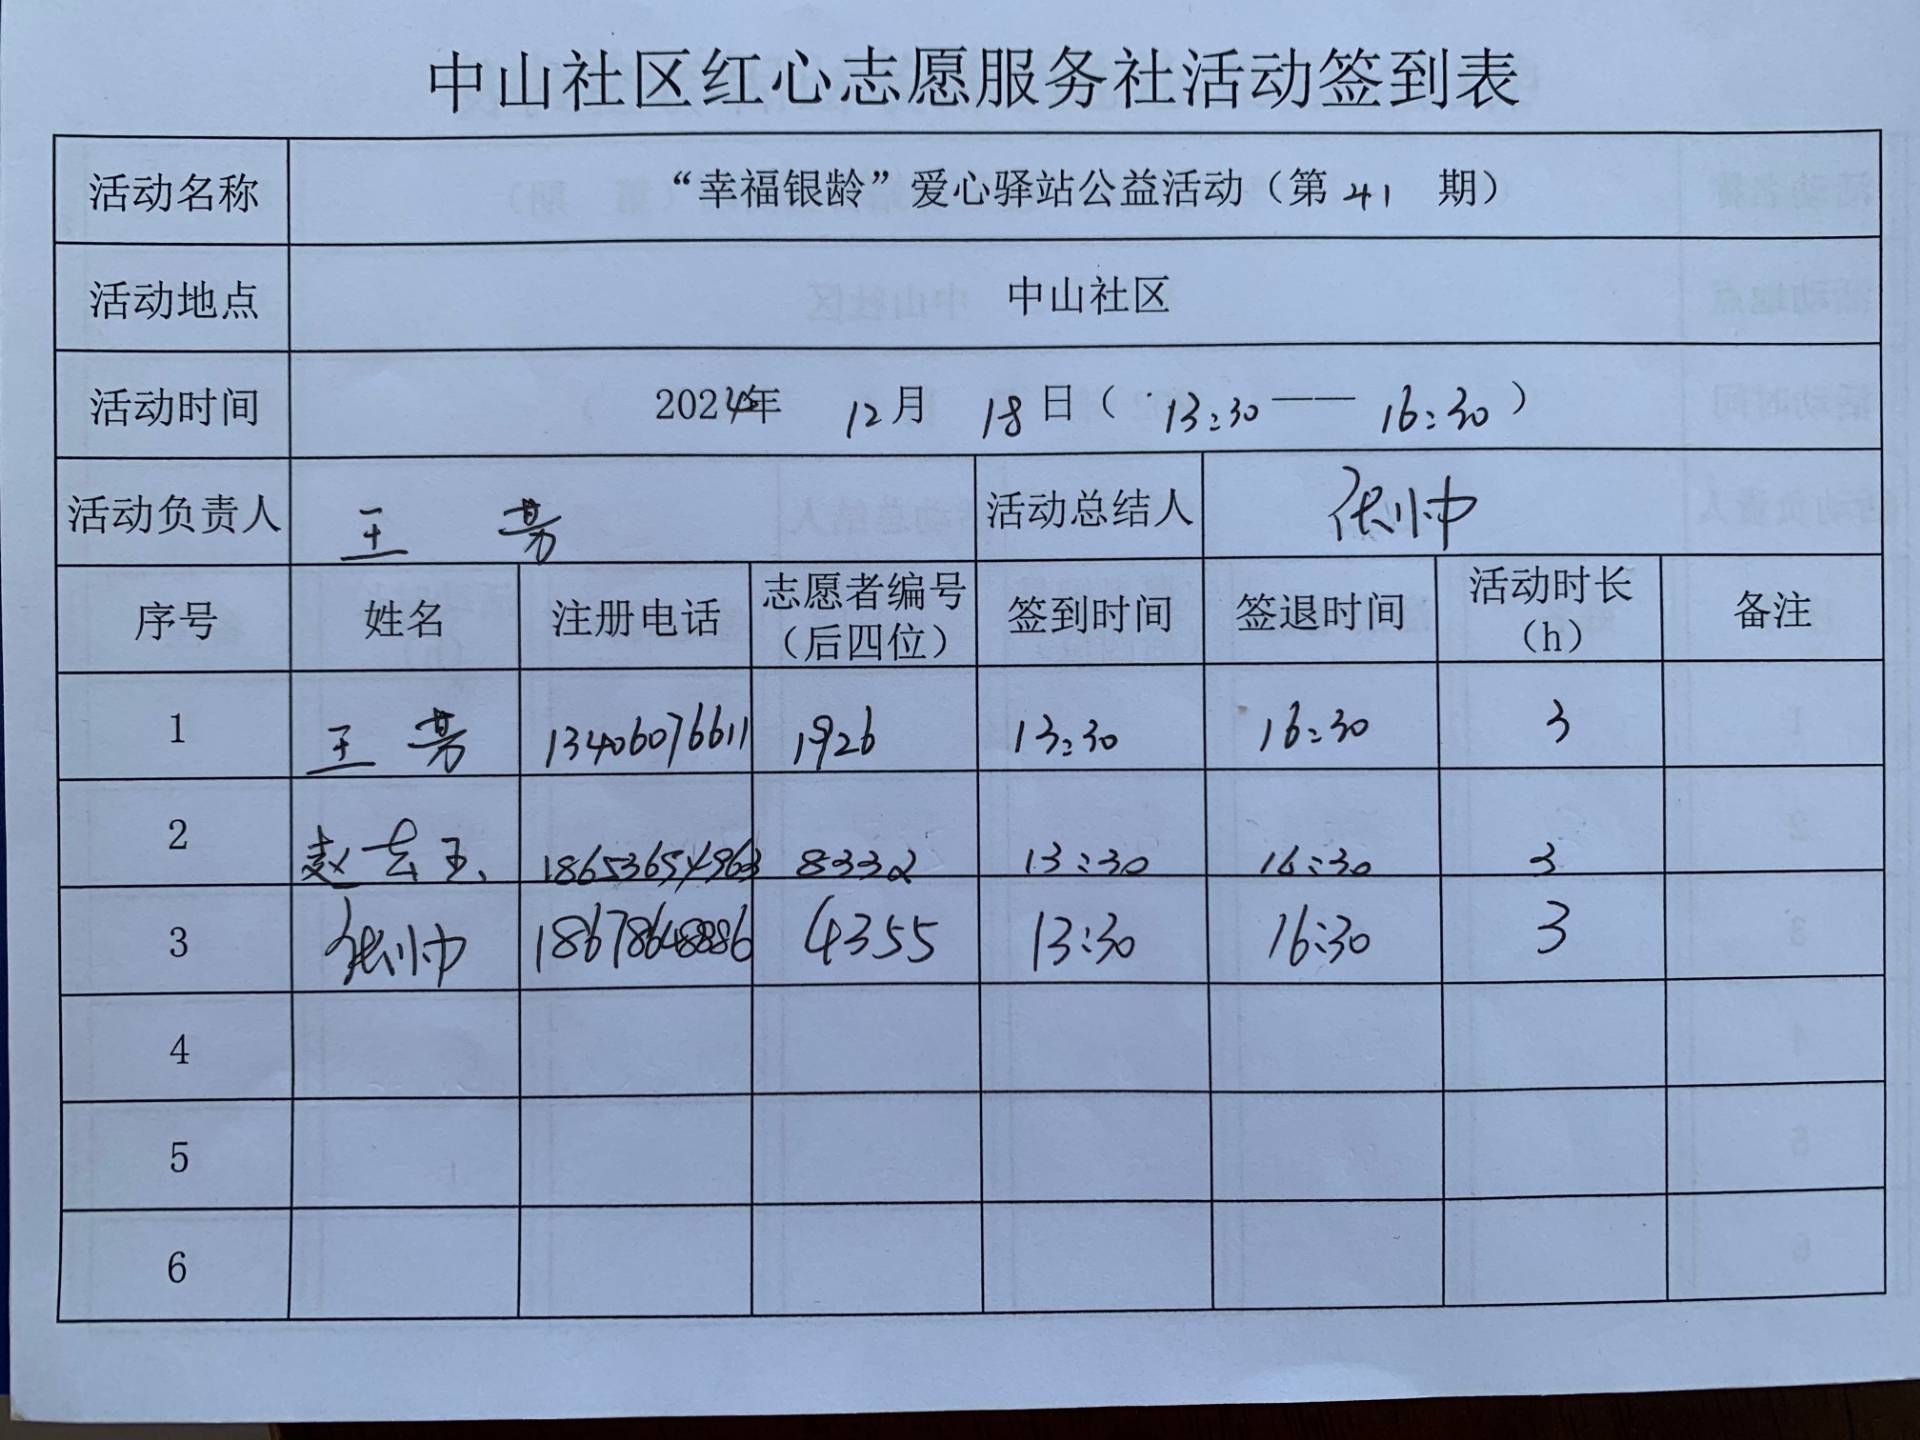 中山社区红心志愿服务社活动签到表
活动名称 “幸福银龄”爱心驿站公益活动（第 41 期）
活动地点 中山社区
活动时间 2024年 12月 18日（13:30——16:30）
活动负责人 王 芳 活动总结人 张帅
序号 姓名 注册电话 志愿者编号（后四位） 签到时间 签退时间 活动时长（h） 备注
1 王 芳 13406076611 1926 13:30 16:30 3
2 赵 玉 18653654963 8332 13:30 16:30 3
3 张帅 18678648886 4355 13:30 16:30 3
4
5
6